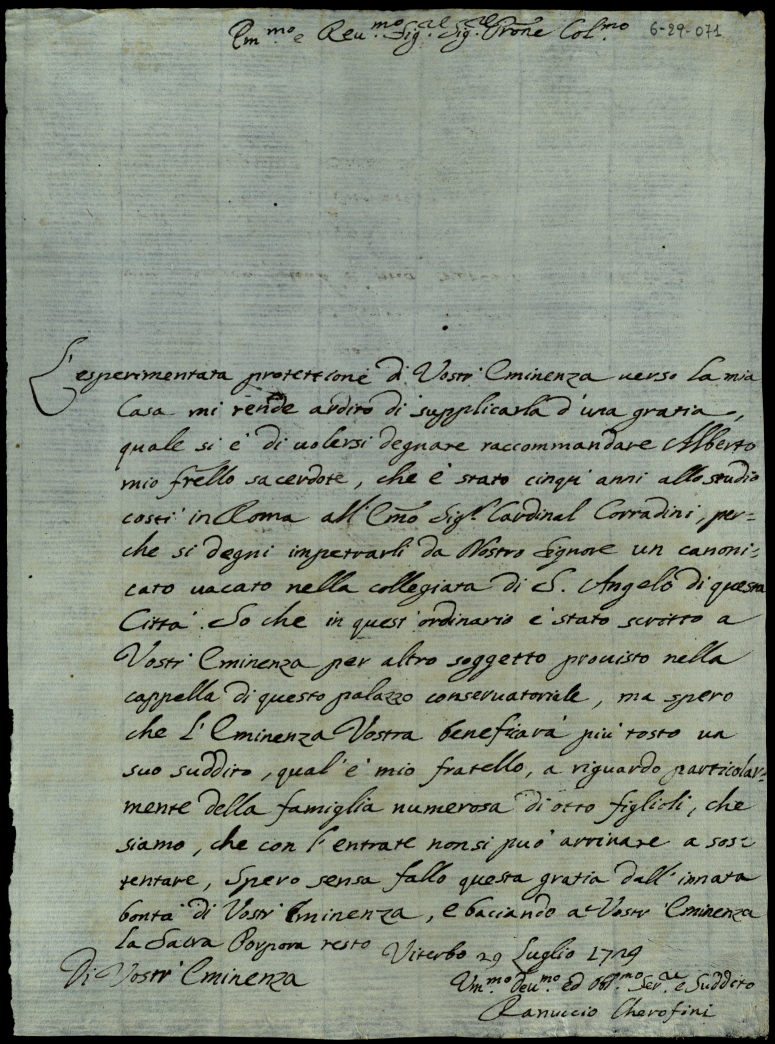 Em.mo e Reu.mo Sig.re Sig.re Prone Col.mo 6-29-071
L'esperimentata protettione di Vostr' Eminenza uerso la mia
Casa mi rende ardito di supplicarla d'una gratia,
quale si è di uolersi degnare raccommandare Alberto
mio frello sacerdote, che è stato cinqu' anni allo studio
costi in Roma all' Emo Sig.r Cardinal Corradini, per=
che si degni impetrarli da Nostro Signore un canoni=
cato uacato nella collegiata di S. Angelo di questa
Citta'. So che in quest' ordinario è stato scritto a
Vostr' Eminenza per altro soggetto prouisto nella
cappella di questo palazzo conseruatoriale, ma spero
che l'Eminenza Vostra beneficarà più tosto un
suo suddito, qual' è mio fratello, a riguardo particolar=
mente della famiglia numerosa di otto figlioli, che
siamo, che con l'entrate non si può arriuare a sos=
tentare, Spero sensa fallo questa gratia dall' innata
bontà di Vostr' Eminenza, e baciando a Vostr' Eminenza
la Sacra Porpora resto Viterbo 29 Luglio 1729
Di Vostr' Eminenza
Um.mo Deu.mo ed Obl.mo Ser.re e Suddito
Ranuccio Cherofini